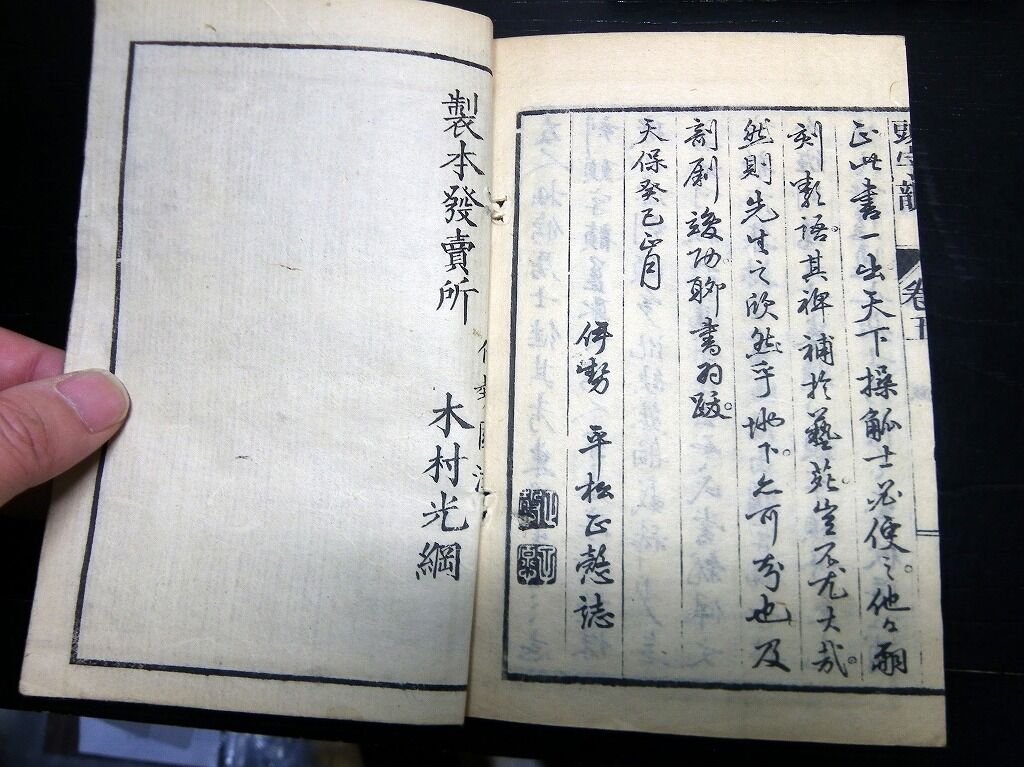 卷五
正此書一出天下操觚士必便之他日嗣
刻數語其裨補於藝苑豈不尤大哉。
然則先生之欣然乎地下亦可知也及
剞劂竣功聊書為跋。
天保癸巳正月
伊勢 平松正愨誌
製本發賣所 木村光綱